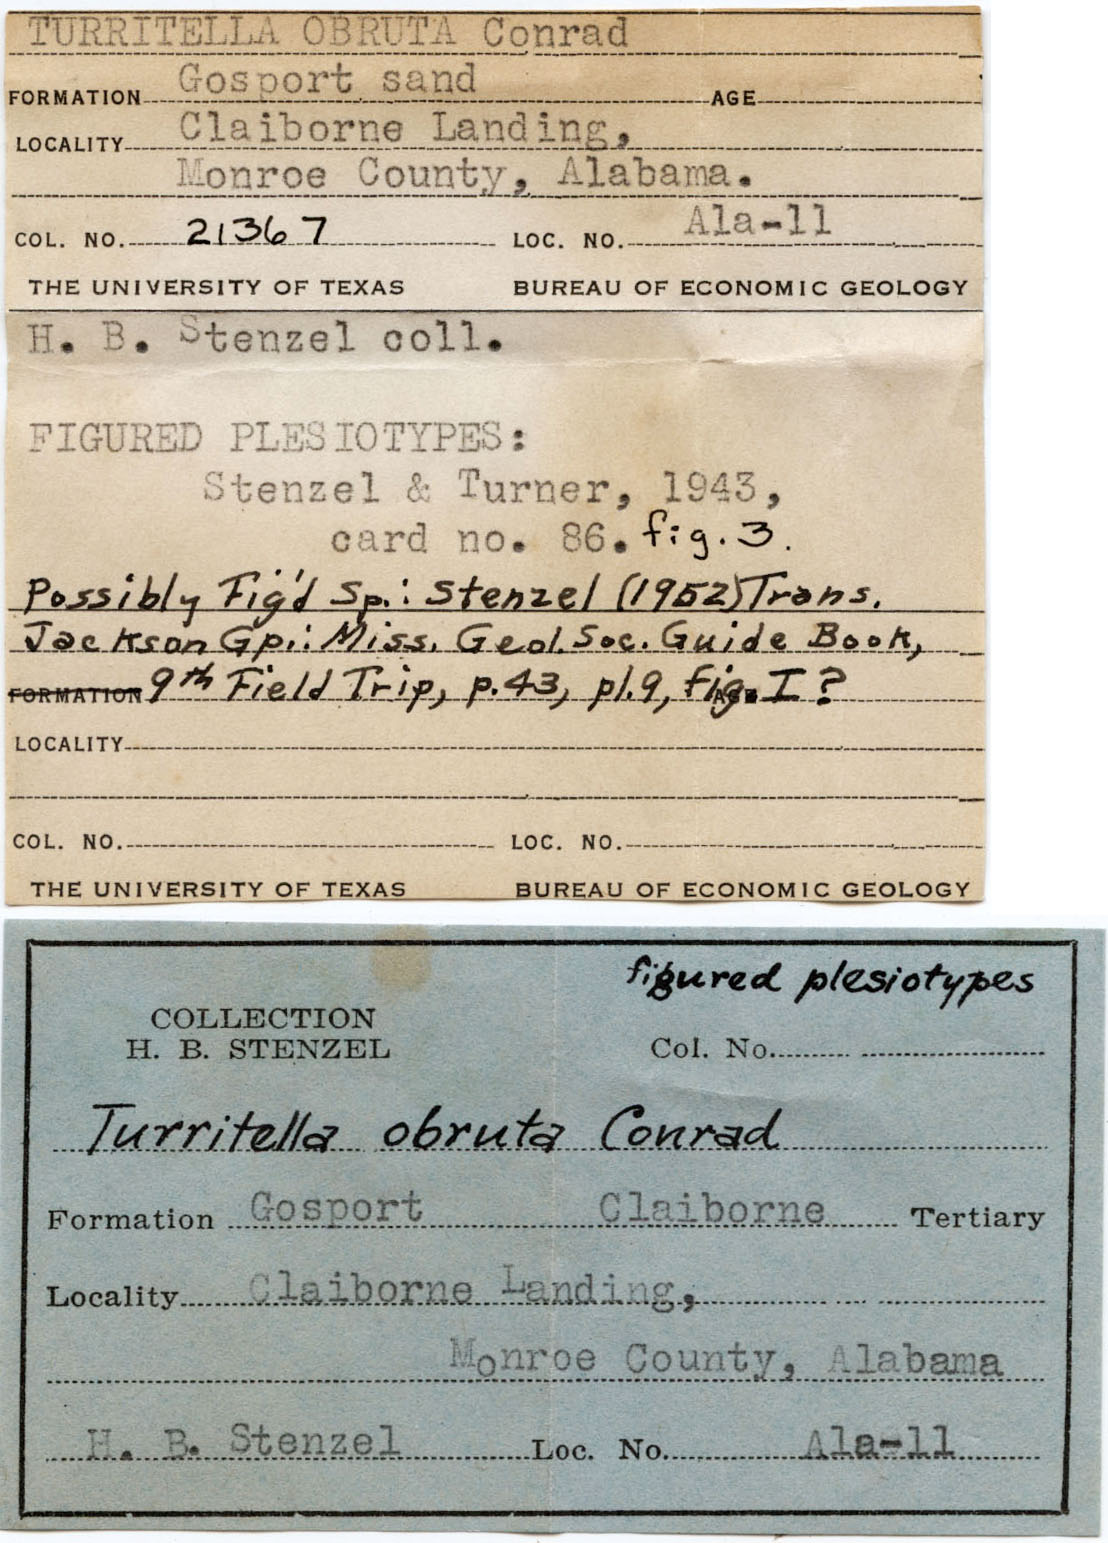 TURRITELLA OBRUTA Conrad
FORMATION Gosport sand AGE
LOCALITY Claiborne Landing,
Monroe County, Alabama.
COL. NO. 21367 LOC. NO. Ala-11
THE UNIVERSITY OF TEXAS BUREAU OF ECONOMIC GEOLOGY
H. B. Stenzel coll.
FIGURED PLESIOTYPES:
Stenzel & Turner, 1943,
card no. 86. fig. 3.
Possibly Fig'd Sp.: Stenzel (1952) Trans.
Jackson Gp.: Miss. Geol. Soc. Guide Book,
FORMATION 9th Field Trip, p.43, pl.9, fig. I? AGE
LOCALITY
COL. NO. LOC. NO.
THE UNIVERSITY OF TEXAS BUREAU OF ECONOMIC GEOLOGY
figured plesiotypes
COLLECTION
H. B. STENZEL Col. No.
Turritella obruta Conrad
Formation Gosport Claiborne Tertiary
Locality Claiborne Landing,
Monroe County, Alabama
H. B. Stenzel Loc. No. Ala-11